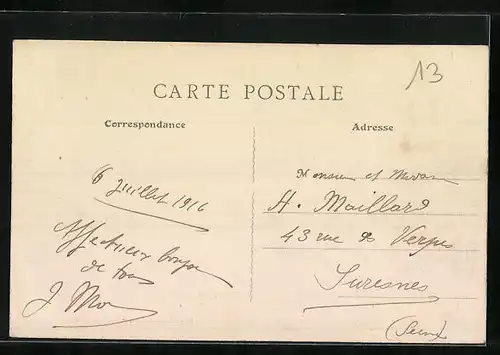 13
CARTE POSTALE
Correspondance
Adresse
6 Juillet 1916
Affectueux bonjour
de tous
J
Monsieur et Madame
H. Maillard
43 rue de
Suresnes
(Seine)